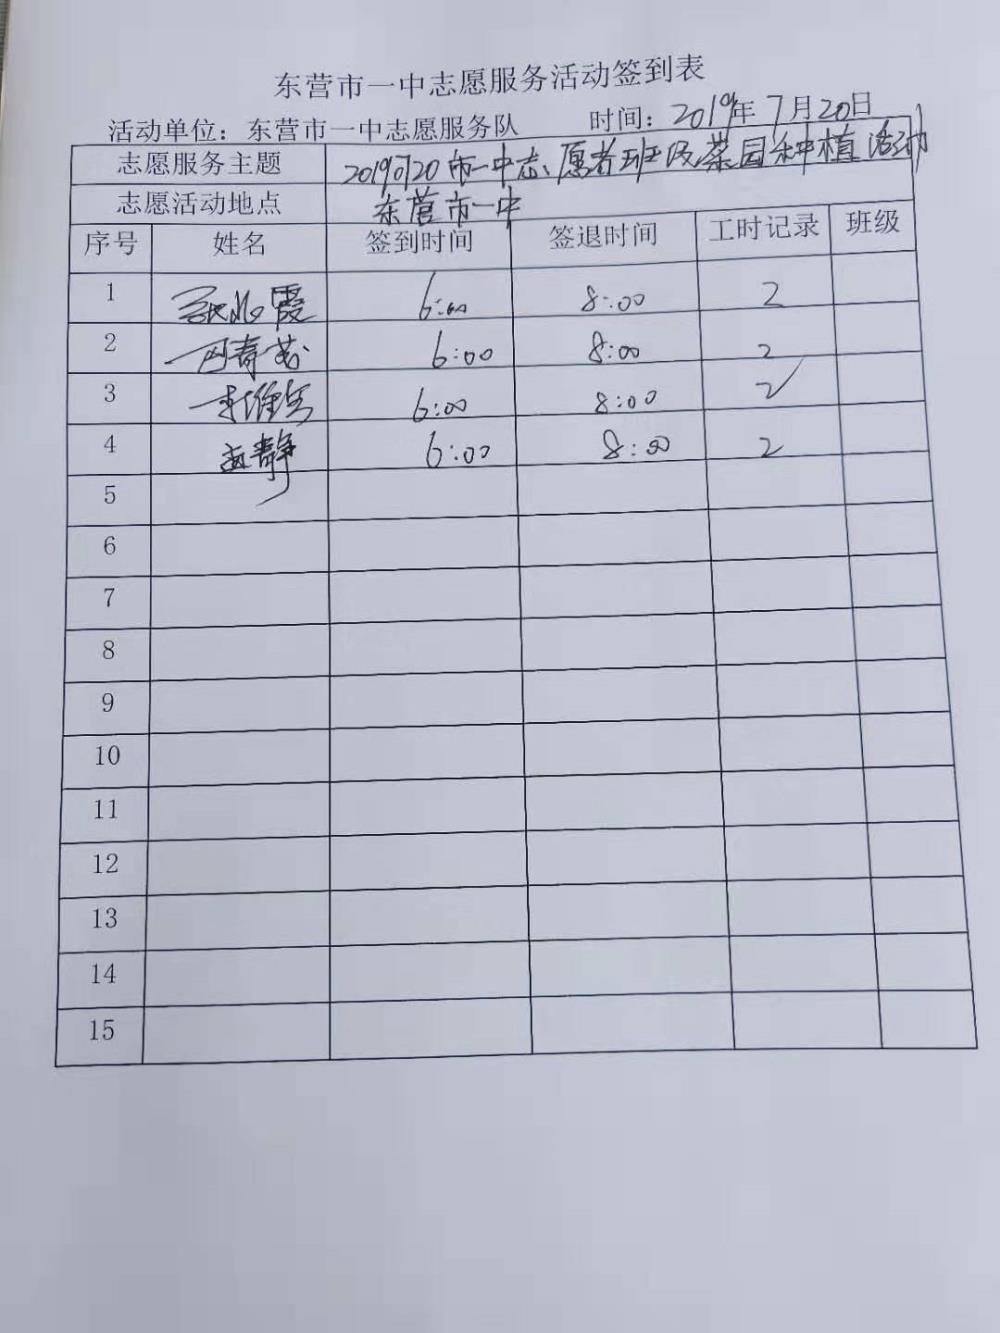 东营市一中志愿服务活动签到表
活动单位：东营市一中志愿服务队 时间：2019年7月20日
志愿服务主题 20190720市一中志愿者班级菜园种植活动
志愿活动地点 东营市一中
序号 姓名 签到时间 签退时间 工时记录 班级
1 霞 6:00 8:00 2
2 6:00 8:00 2
3 李维 6:00 8:00 2
4 静 6:00 8:00 2
5
6
7
8
9
10
11
12
13
14
15